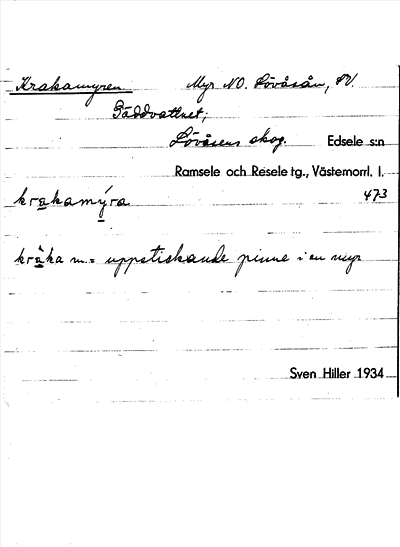 Krakamyren Myr NO. Lövåsån, SV.
Gäddvattnet;
Lövåsens skog. Edsele s:n
Ramsele och Resele tg., Västernorrl. l.
krakamýra 473
kràka m. = uppstickande pinne i en myr
Sven Hiller 1934